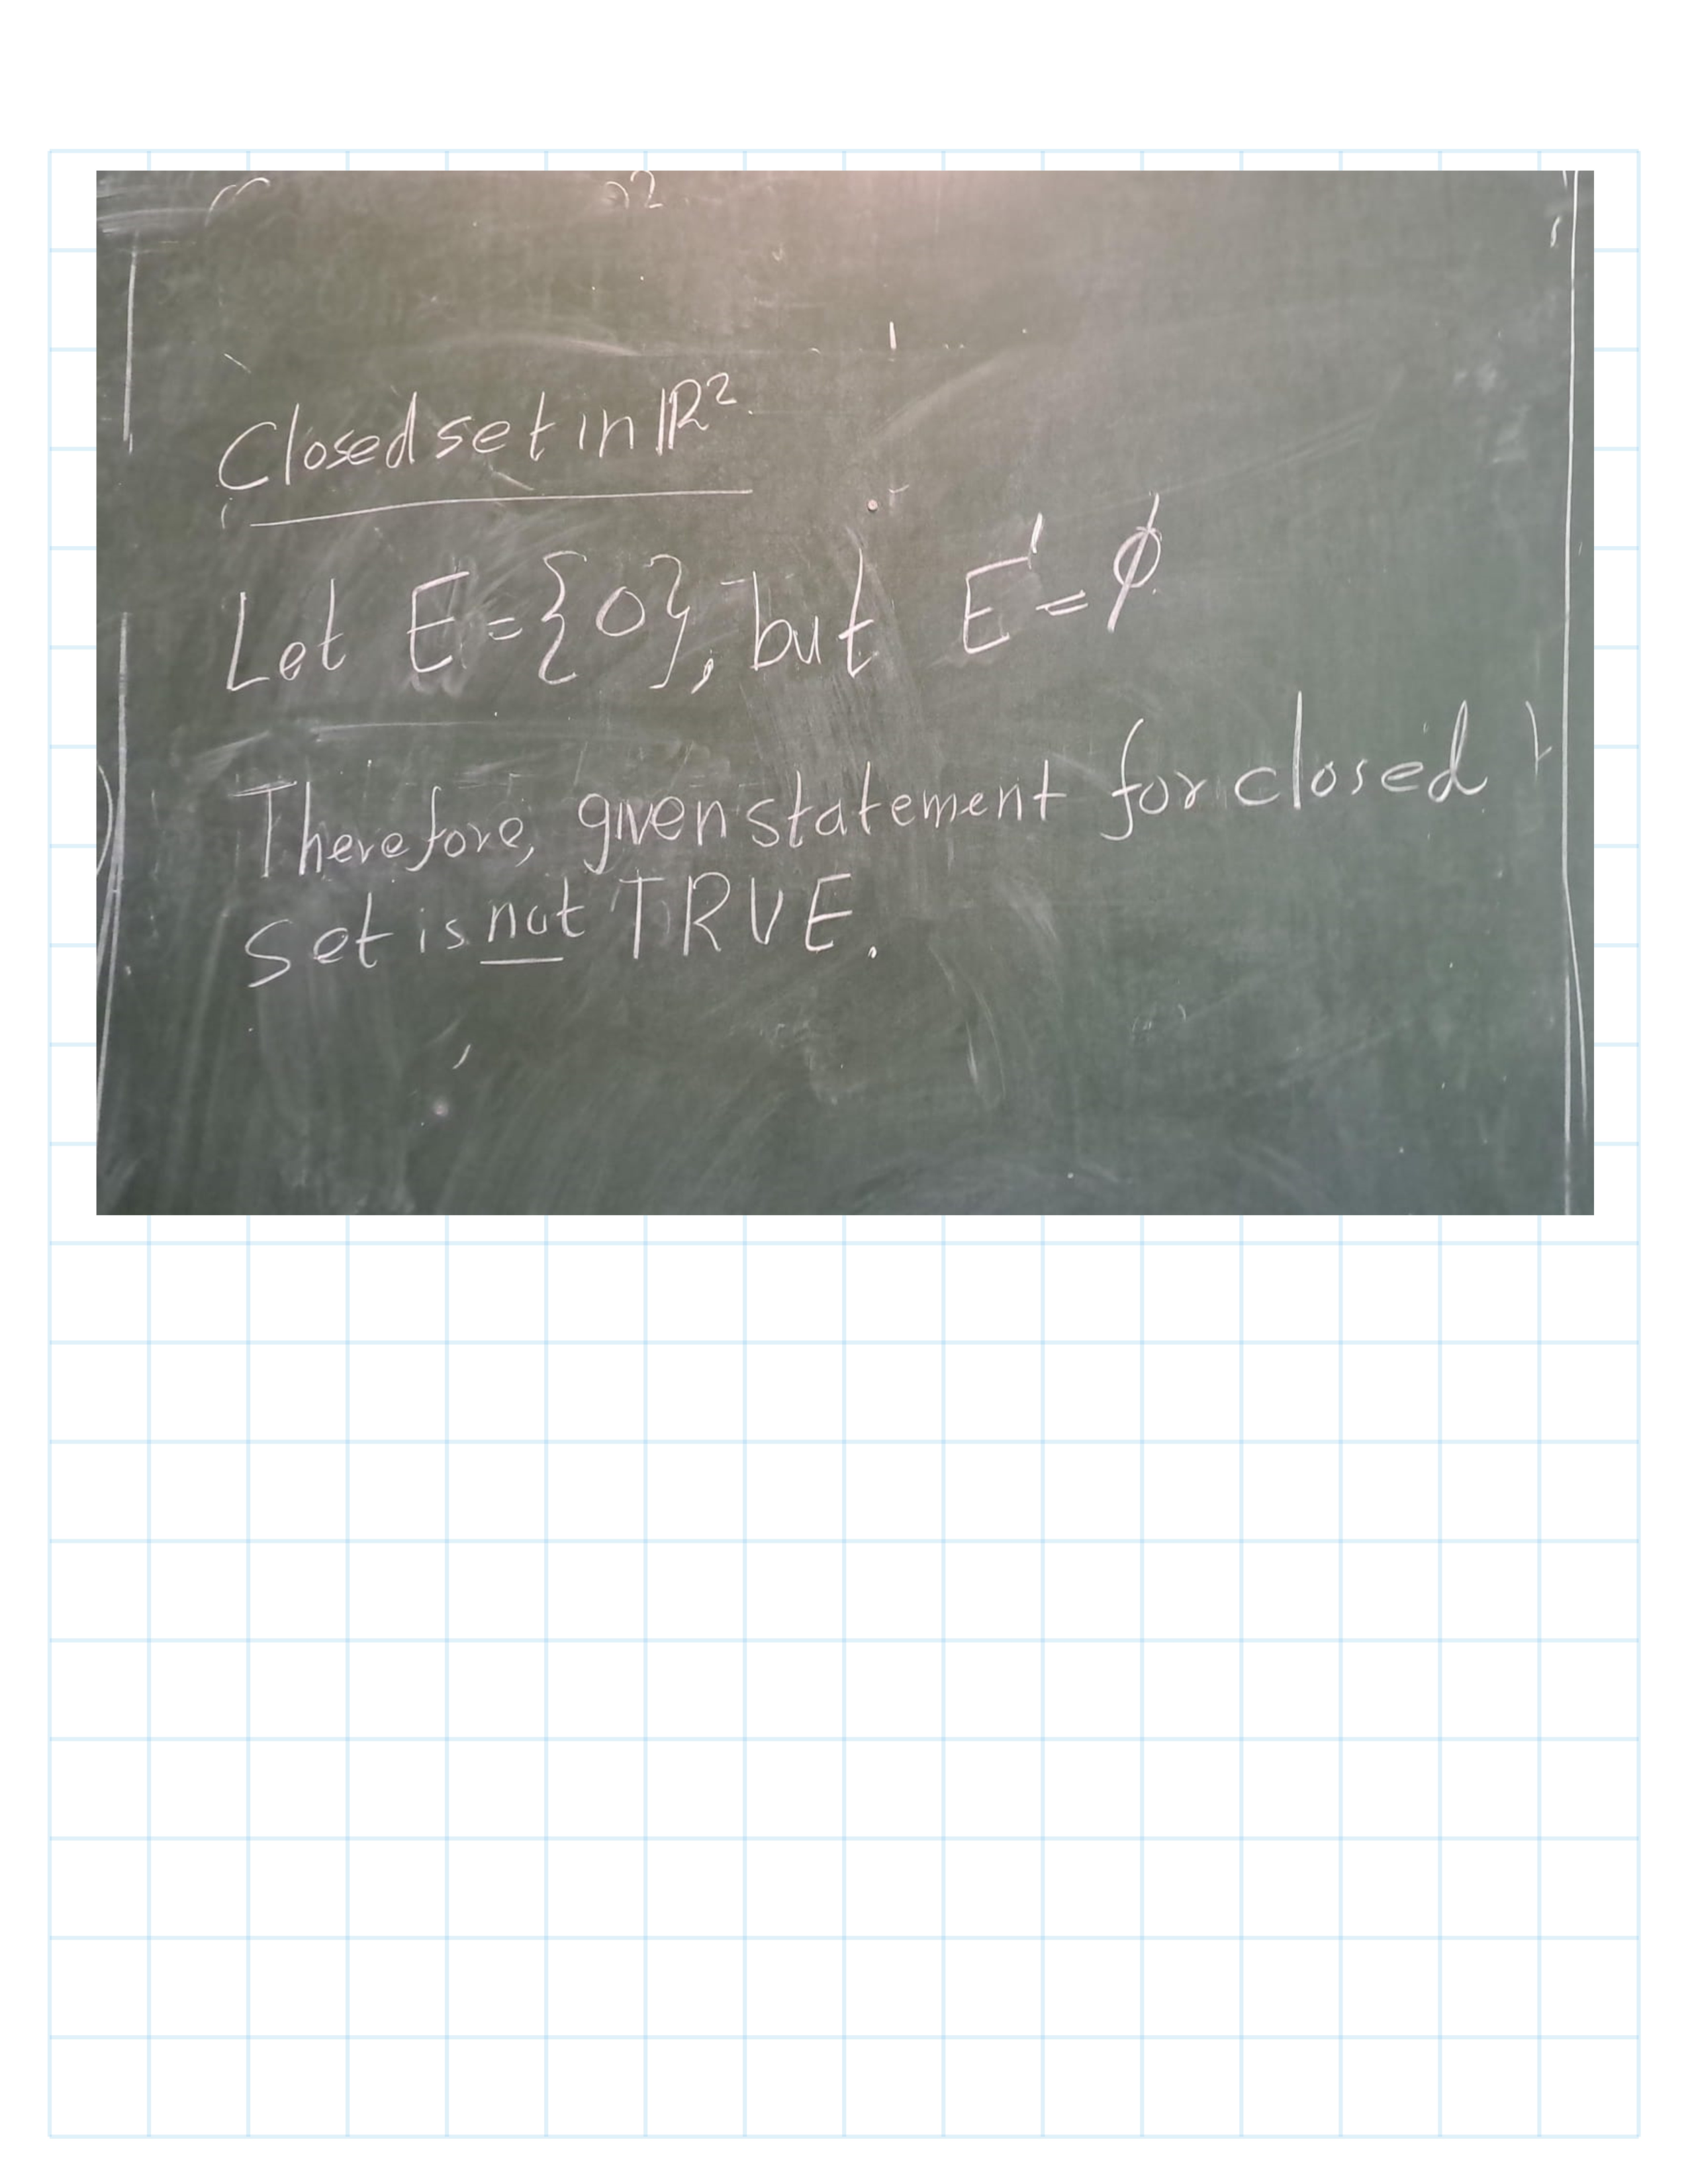 Closed set in ℝ²
Let E = {0}, but E' = ϕ
Therefore, given statement for closed
set is not TRUE.